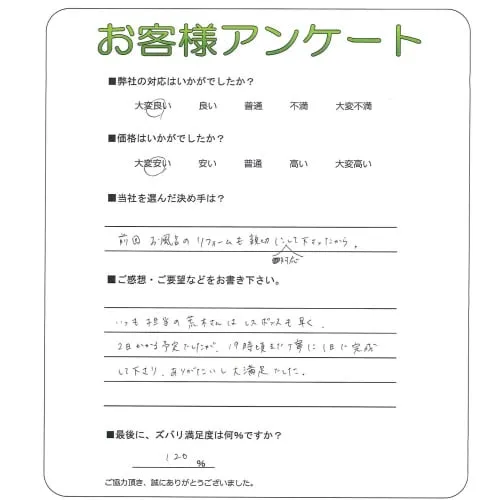 お客様アンケート
■弊社の対応はいかがでしたか？
大変良い 良い 普通 不満 大変不満
■価格はいかがでしたか？
大変安い 安い 普通 高い 大変高い
■当社を選んだ決め手は？
前回 お風呂のリフォームも親切にして下さったから。
対応
■ご感想・ご要望などをお書き下さい。
いつも担当の荒木さんはレスポンスも早く、
2日かかる予定でしたが、19時頃まで丁寧に1日で完成
して下さり、ありがたいし大満足でした。
■最後に、ズバリ満足度は何%ですか？
120 %
ご協力頂き、誠にありがとうございました。